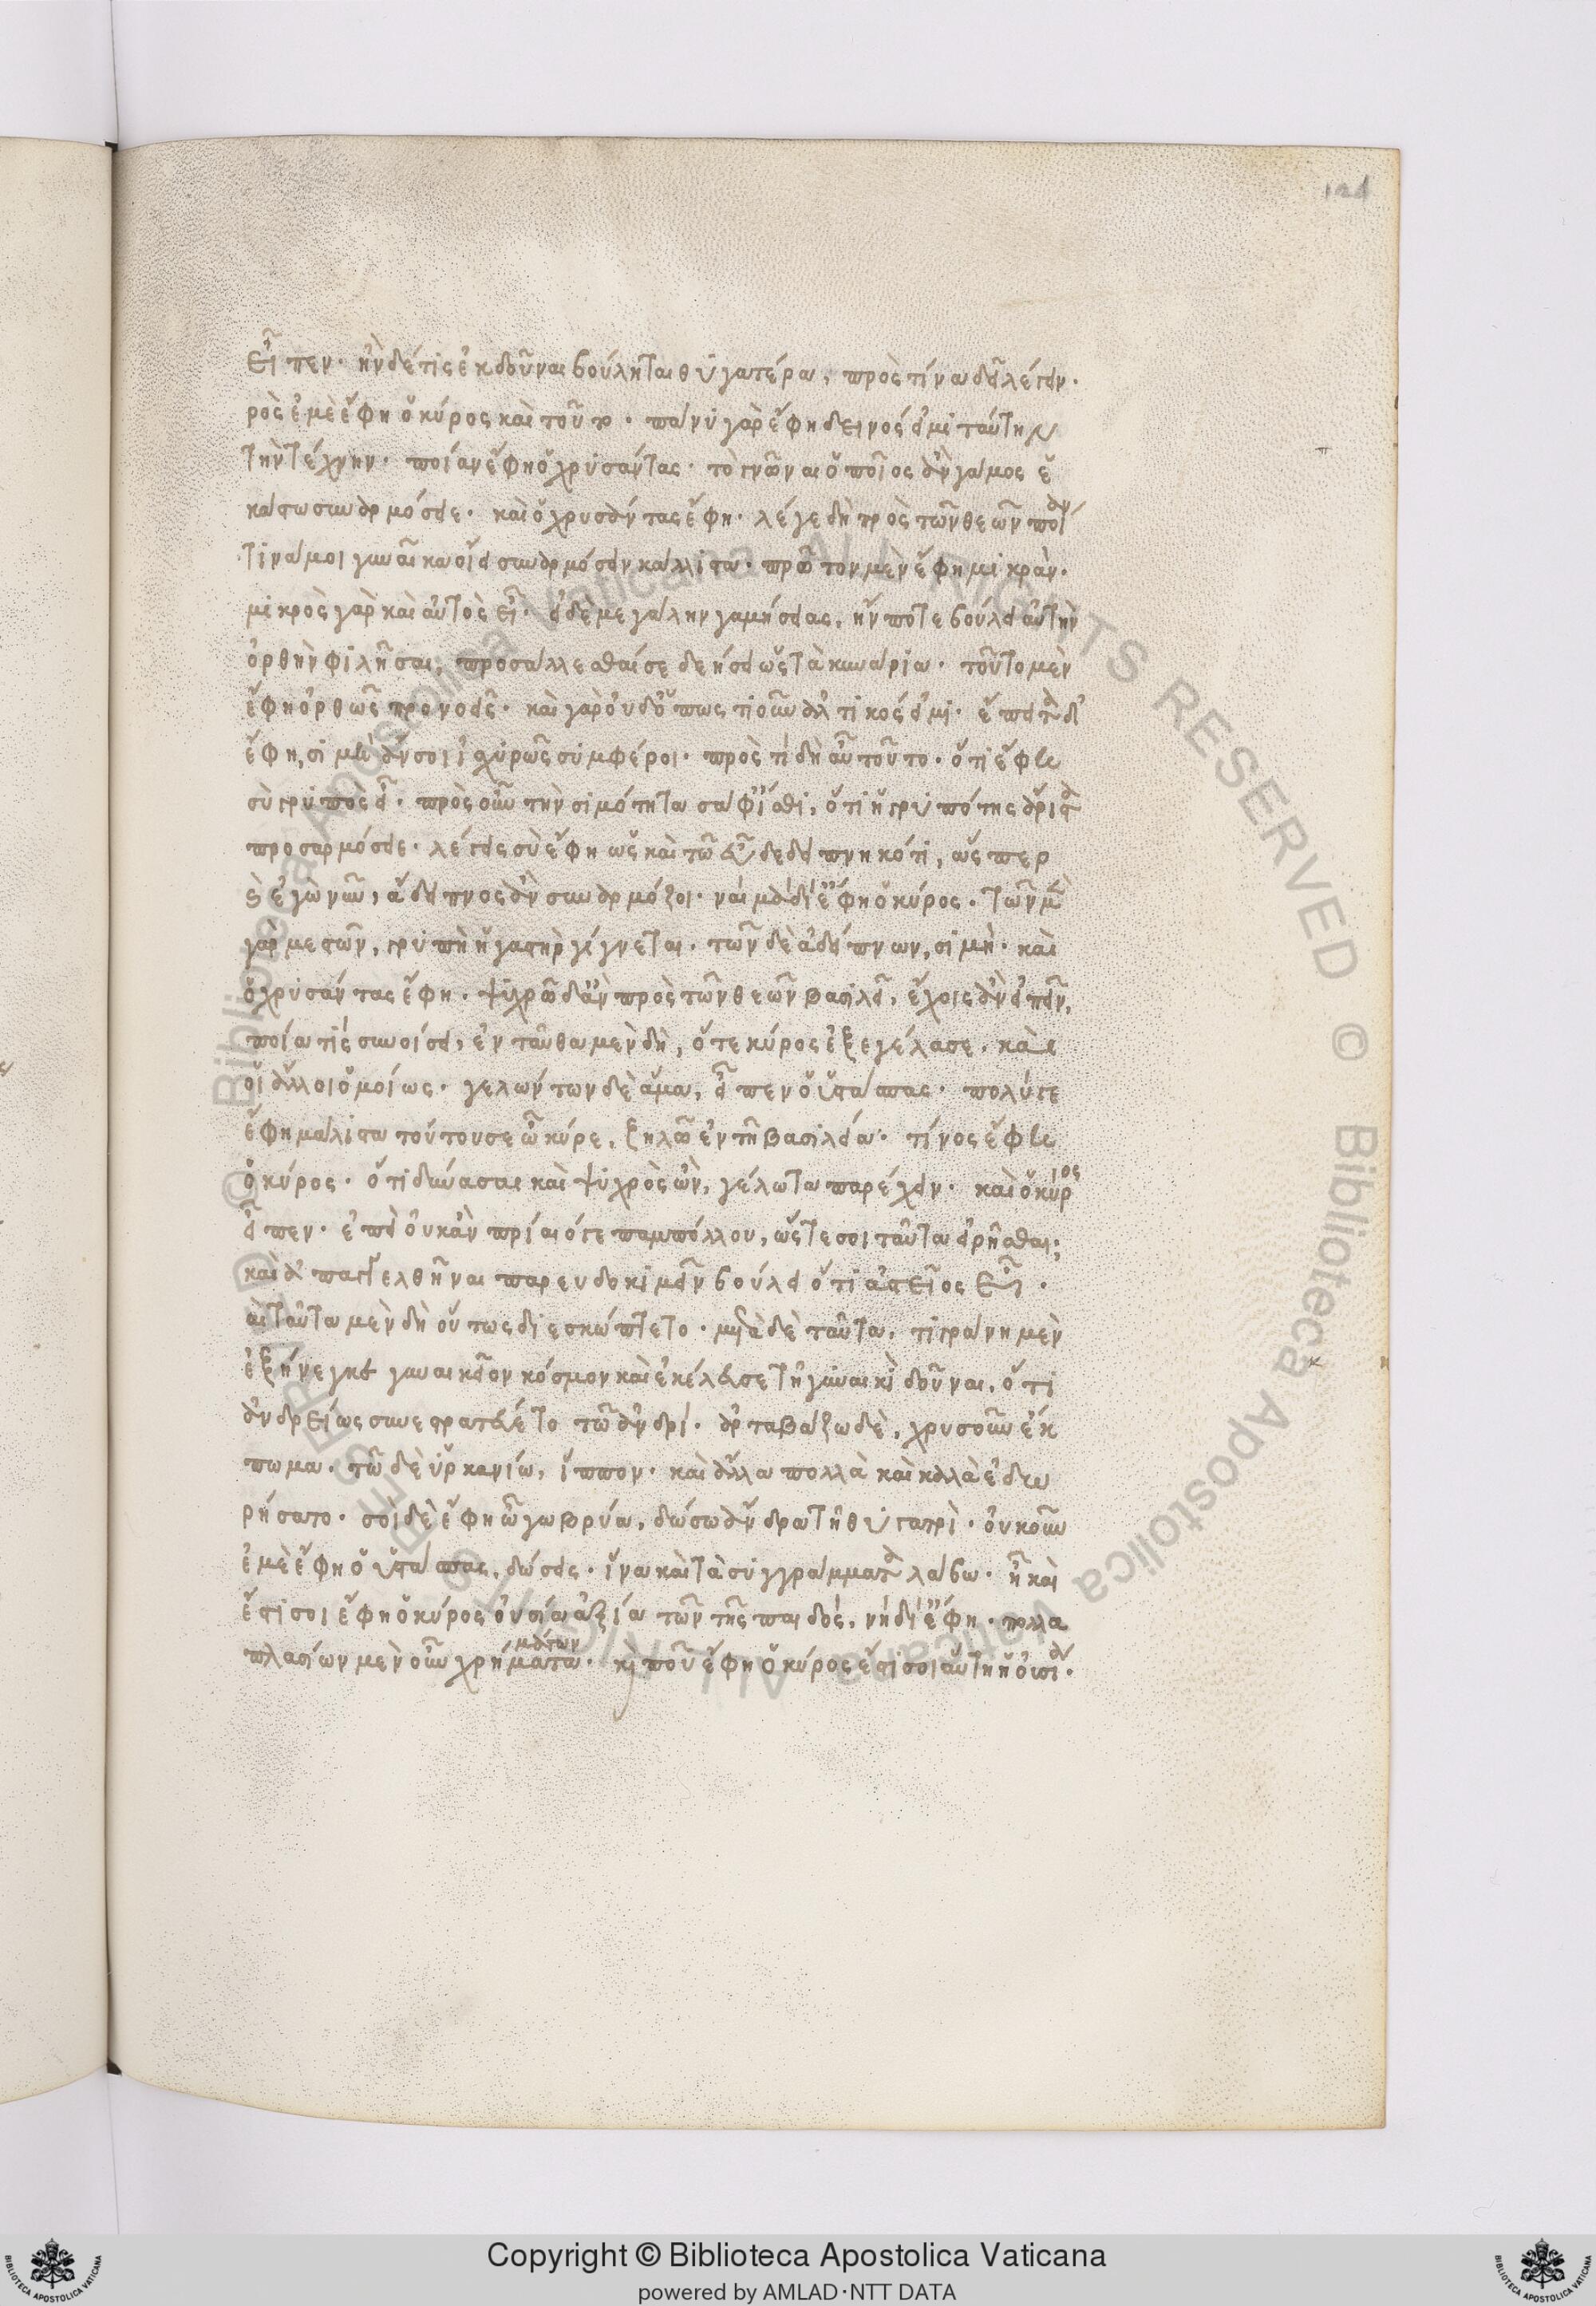 121
εἶπεν· ἢν δέ τις ἐκδοῦναι βούληται θυγατέρα, πρὸς τίνα δεῖ λέγειν·
ρὸς ἐμὲ ἔφη ὁ κύρος καὶ τοῦτο· πάνυ γὰρ ἔφη δεινός εἰμι ταύτην
τὴν τέχνην· ποίαν ἔφη ὁ χρυσάντας· τὸ γνῶναι ὁποῖος ἂν γάμος ἑ
κάστω συναρμόσειε· καὶ ὁ χρυσάντας ἔφη· λέγε δὴ πρὸς τῶν θεῶν ποίαν
τινά μοι γυναῖκα οἴει συναρμόσειν κάλλιστα· πρῶτον μὲν ἔφη μικράν·
μικρὸς γὰρ καὶ αὐτὸς εἶ· εἰ δὲ μεγάλην γαμήσειας, ἤν ποτε βούλει αὐτὴν
ὀρθὴν φιλῆσαι, προσάλλεσθαί σε δεήσει ὡς τὰ κυνάρια· τοῦτο μὲν
ἔφη ὀρθῶς προνοεῖς· καὶ γὰρ οὐδ' ὁπωστιοῦν ἁλτικός εἰμι· ἔπειτα δ'
ἔφη, σιμὴ ἄν σοι ἰσχυρῶς συμφέροι· πρὸς τί δὴ αὖ τοῦτο· ὅτι ἔφη
σὺ γρυπὸς εἶ· πρὸς οὖν τὴν σιμότητα σάφ' ἴσθι, ὅτι ἡ γρυπότης ἄριστα
προσαρμόσειε· λέγεις σὺ ἔφη ὡς καὶ τῶ εὖ δεδειπνηκότι, ὥσπερ
καὶ ἐγὼ νῦν, ἄδειπνος ἂν συναρμόζοι· ναὶ μὰ δί' ἔφη ὁ κύρος· τῶν μὲν
γὰρ μεστῶν, γρυπὴ ἡ γαστὴρ γίγνεται· τῶν δὲ ἀδείπνων, σιμή· καὶ
ὁ χρυσάντας ἔφη· ψυχρῶ δ' ἂν πρὸς τῶν θεῶν βασιλεῖ, ἔχοις ἂν εἰπεῖν,
ποία τίς συνοίσει, ἐνταῦθα μὲν δὴ, ὅ τε κύρος ἐξεγέλασε, καὶ
οἱ ἄλλοι ὁμοίως· γελώντων δὲ ἅμα, εἶπεν ὁ ὑστάσπας· πολύ γε
ἔφη μάλιστα τούτου σε ὦ κύρε, ζηλῶ ἐν τῆ βασιλεία· τίνος ἔφη
ὁ κύρος· ὅτι δύνασαι καὶ ψυχρὸς ὢν, γέλωτα παρέχειν· καὶ ὁ κύρος
εἶπεν· ἔπειτ' οὐκ ἂν πρίαιό γε παμπόλλου, ὥστε σοι ταῦτα εἰρῆσθαι;
καὶ ἀπαγγελθῆναι παρ' εὐδοκιμεῖν βούλει ὅτι ἀστεῖος εἶ·
αὶ ταῦτα μὲν δὴ οὕτως διεσκώπτετο· μετὰ δὲ ταῦτα, τιγράνη μὲν
ἐξήνεγκε γυναικεῖον κόσμον καὶ ἐκέλευσε τῆ γυναικὶ δοῦναι, ὅτι
ἀνδρείως συνεστρατεύετο τῶ ἀνδρί· ἀρταβάζω δὲ, χρυσοῦν ἔκ
πωμα· τῶ δὲ ὑρκανίω, ἵππον· καὶ ἄλλα πολλὰ καὶ καλὰ ἐδω
ρήσατο· σοὶ δὲ ἔφη ὦ γωβρύα, δώσω ἄνδρα τῆ θυγατρί· οὐκοῦν
ἐμὲ ἔφη ὁ ὑστάσπας, δώσεις· ἵνα καὶ τὰ συγγράμματα λάβω· ἦ καὶ
ἔστι σοι ἔφη ὁ κύρος οὐσία ἀξία τῶν τῆς παιδός, νὴ δί' ἔφη· πολλα
πλασίων μὲν οὖν χρημάτων· καὶ ποῦ ἔφη ὁ κύρος ἔστι σοι αὕτη ἡ οὐσία·